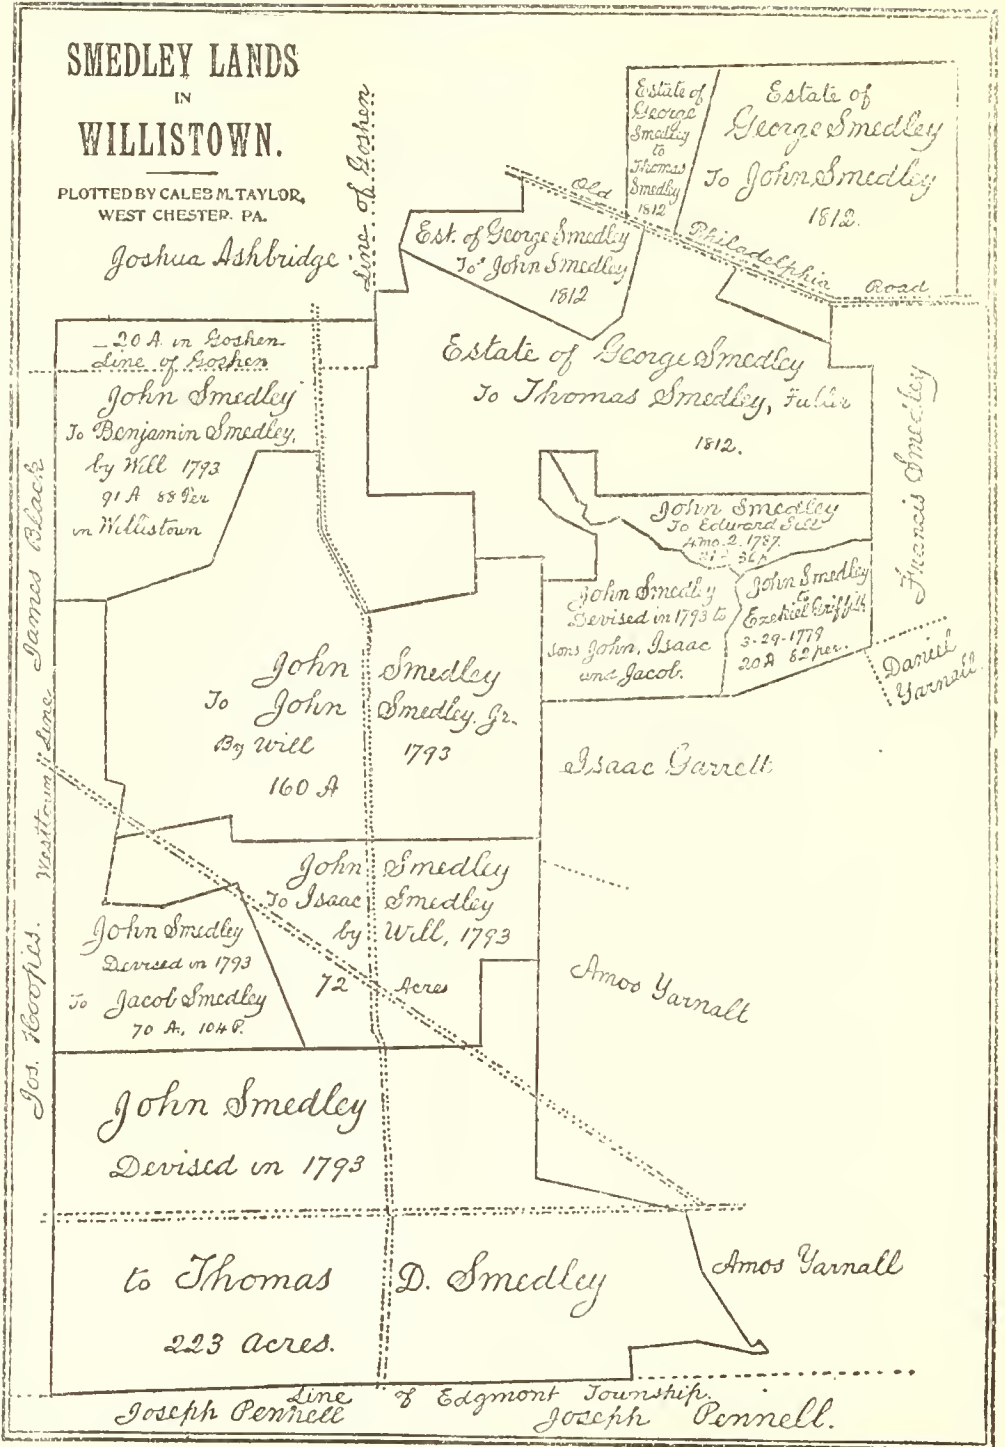 SMEDLEY LANDS
IN
WILLISTOWN.
PLOTTED BY CALEB M. TAYLOR,
WEST CHESTER. PA.
Joshua Ashbridge
Line of Goshen
Estate of
George
Smedley
to
Thomas
Smedley
1812
Estate of
George Smedley
To John Smedley
1812.
Old Philadelphia Road
Est. of George Smedley
To John Smedley
1812
20 A. in Goshen
Line of Goshen
John Smedley
To Benjamin Smedley,
by Will 1793
91 A 88 Per
in Willistown
Estate of George Smedley
To Thomas Smedley, Fuller
1812.
Francis Smedley
John Smedley
To Edward
4 mo. 2. 1787.
John Smedley
Devised in 1793 to
sons John, Isaac
and Jacob.
John Smedley
to
Ezekiel Griffith
3-29-1779
20 A 82 per.
Daniel
Yarnall
James Black
Westtown Line
Jos. Hoopes.
John Smedley
To John Smedley, Jr.
By Will 1793
160 A
Isaac Garrett
John Smedley
To Isaac Smedley
by Will, 1793
72 Acres
John Smedley
Devised in 1793
To Jacob Smedley
70 A, 104 P.
Amos Yarnall
John Smedley
Devised in 1793
to Thomas D. Smedley
223 Acres.
Amos Yarnall
Line of Edgmont Township.
Joseph Pennell
Joseph Pennell.